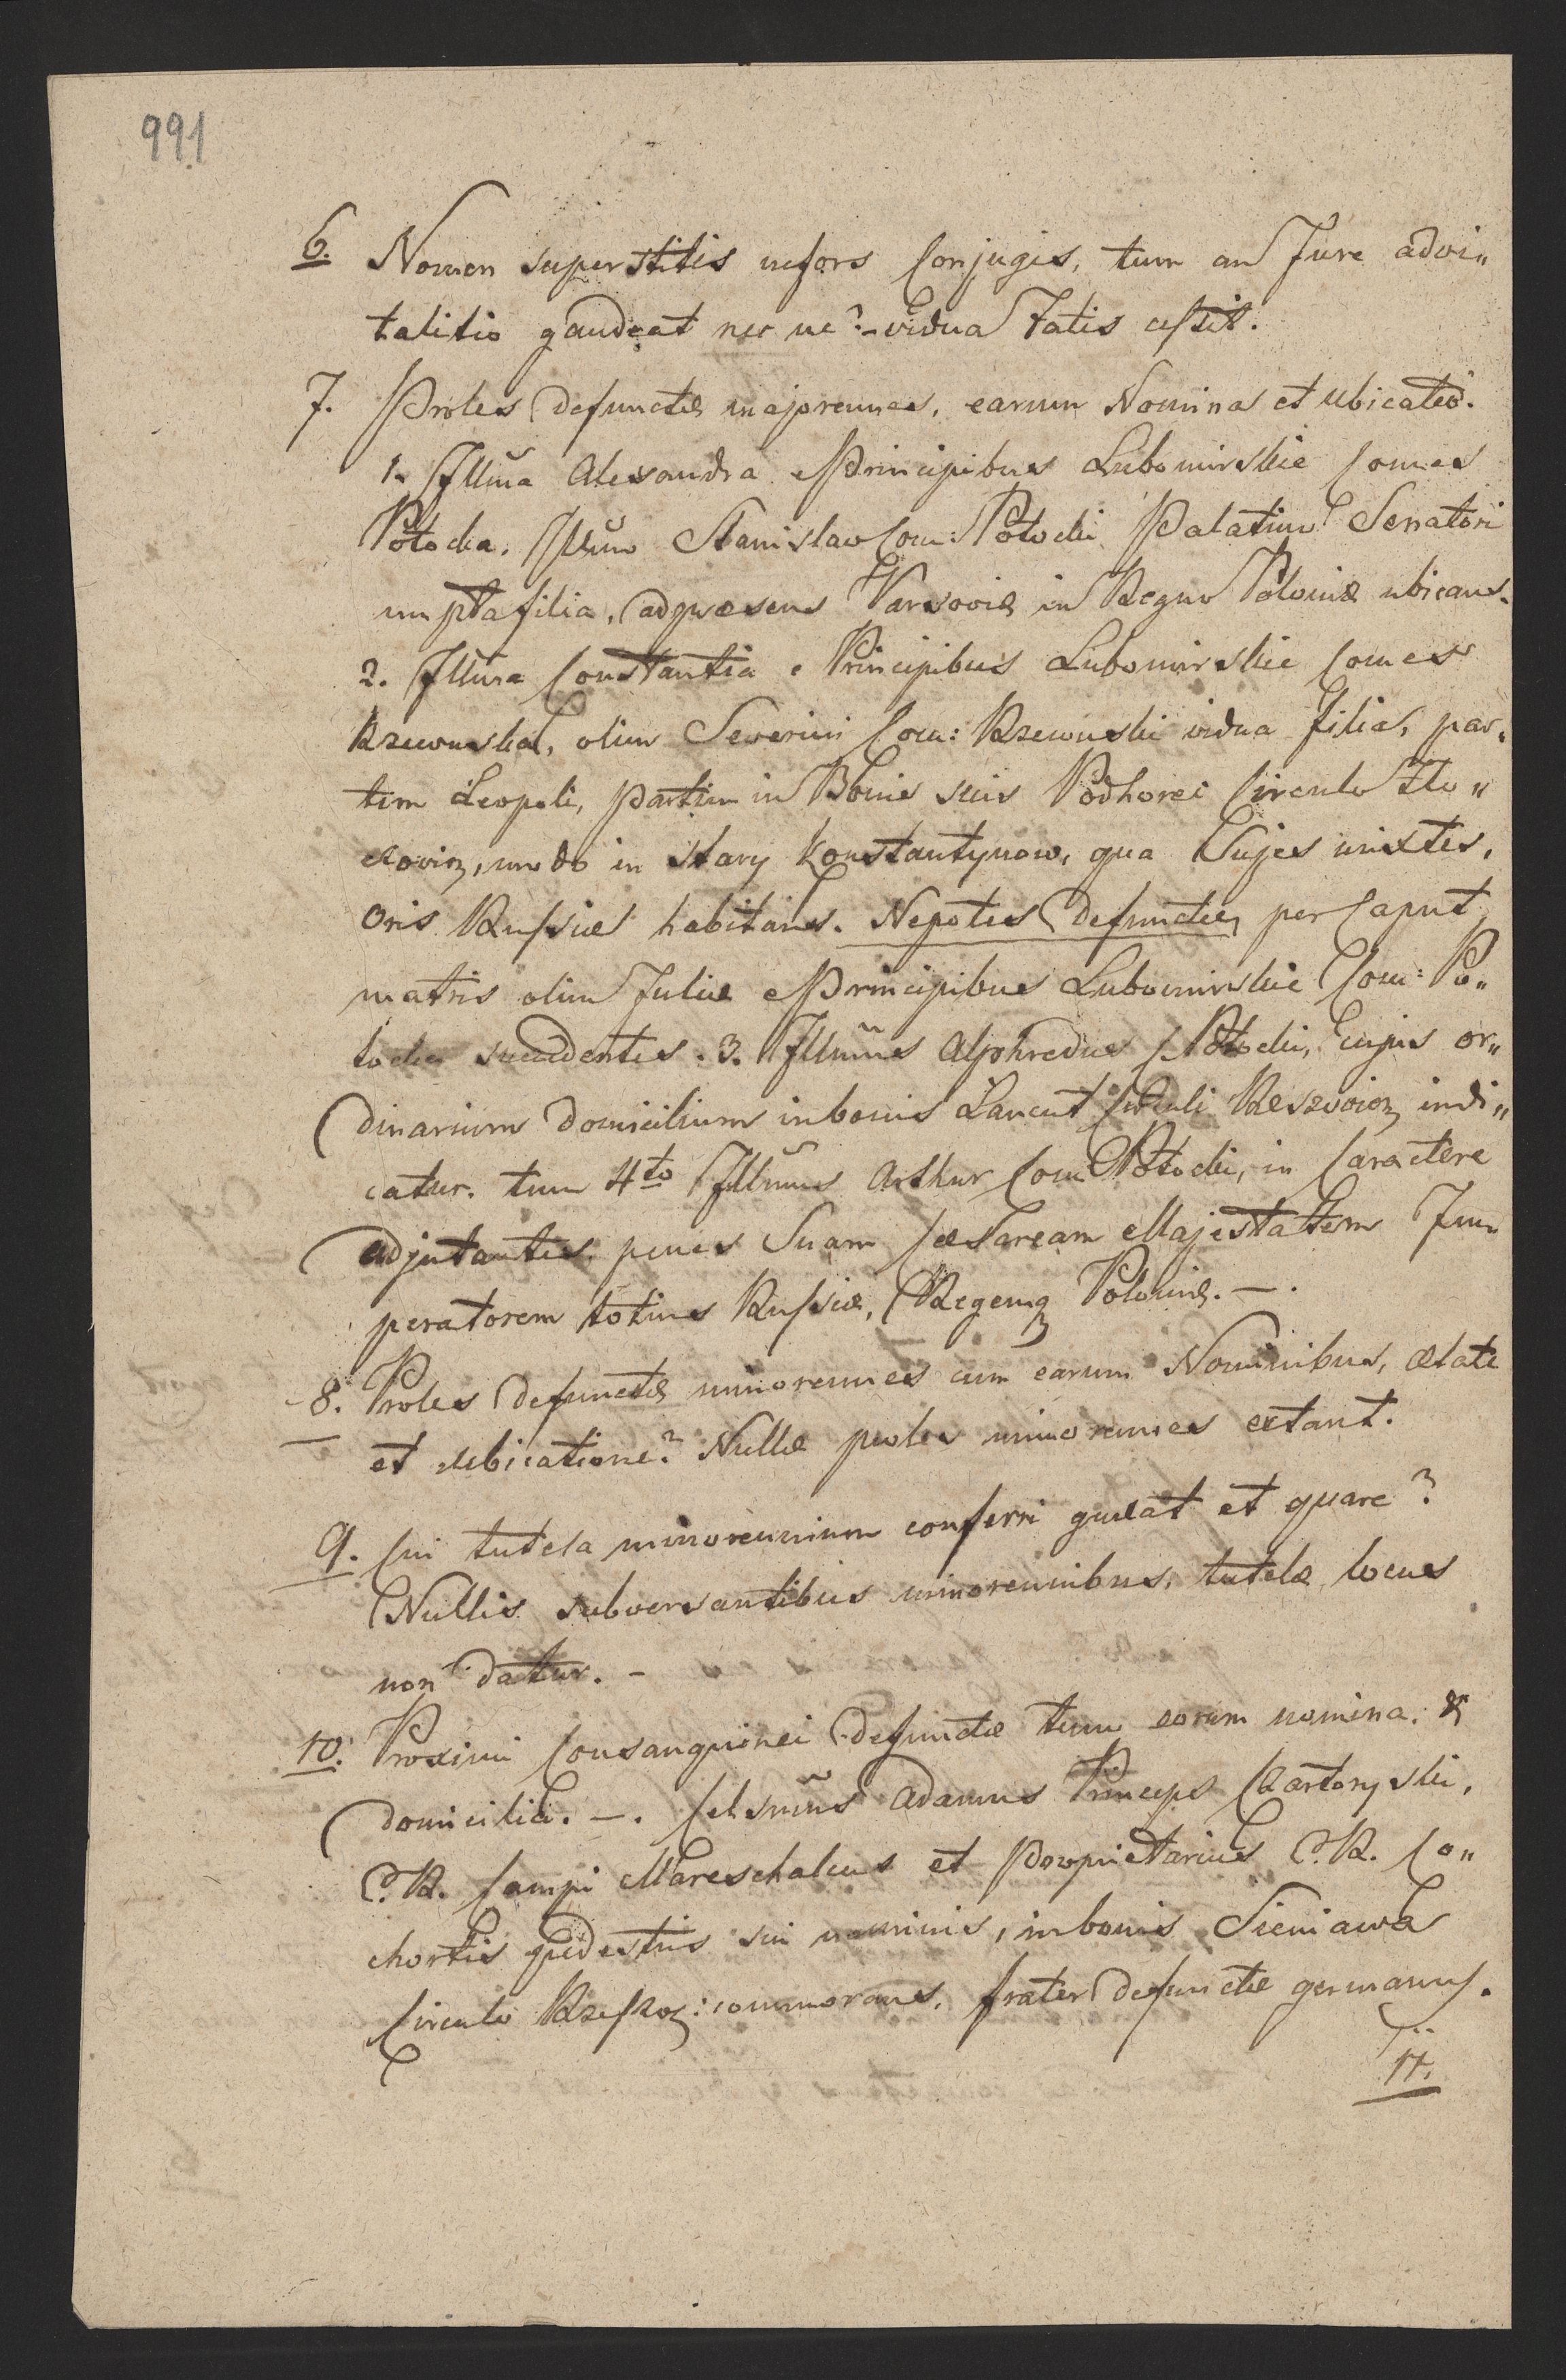 991
6. Nomen superstitis uxors Conjugis, tum an Jure advi„
talitio gaudeat nec ne? - vidua Fatis cessit.
7. Proles Defunctæ majorennes, earum Nomina et ubicatio.
1. Illma Alexandra e Principibus Lubomirskie Comes
Potocka, Stanislao Com: Potocki Palatino Senatori
nupta filia, ad præsens Varsoviæ in Regno Poloniæ ubicans.
2. Illma Constantia e Principibus Lubomirskie Comes
Rzewuska, olim Severini Com: Rzewuski vidua filia, par„
tim Leopoli, partim in Bonis suis Podhorci Circulo Zlo„
modo in Stary Konstantynow, qua Sujes mixtus,
oris Russiæ habitans. Nepotes Defunctæ, per Caput
matris olim Juliæ e Principibus Lubomirskie Com: Po„
tocka succedentes. 3. Illmus Alphredus C. Potocki, cujus or„
dinarium domicilium in bonis Lancut Circuli indi„
catur. tum 4to Illmus Arthur Com Potocki, in Caractere
adjutantis, penes Suam Cæsaream Majestattem Im„
peratorem totius Russiæ, Regemq Poloniæ. - .
8. Proles Defunctæ minorennes cum earum Nominibus, ætate
et ubicatione? Nullæ proles minorennes extant.
9. Cui tutela minorennium conferri queat et quare?
Nullis subversantibus minorennibus, tutelæ locus
non datur. -
10. Proximi Consanguinei Defunctæ tum eorum nomina. &
domicilia. - . Celsmus Adamus Princeps Czartoryski,
C. R. Campi Mareschalcus et Proprietarius C. R. Co„
chortis pedestris sui nominis, in bonis Sieniawa
Circulo commorans, frater Defunctæ germanus.
11.